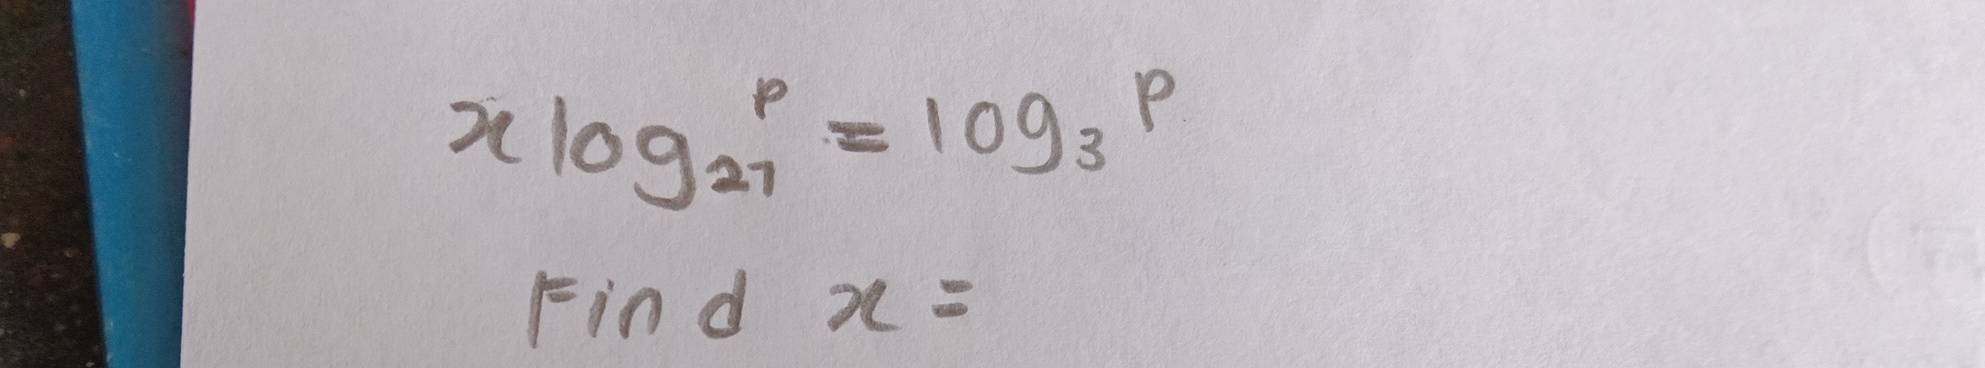 x log₂₇ᵖ = log₃ᵖ
Find x =